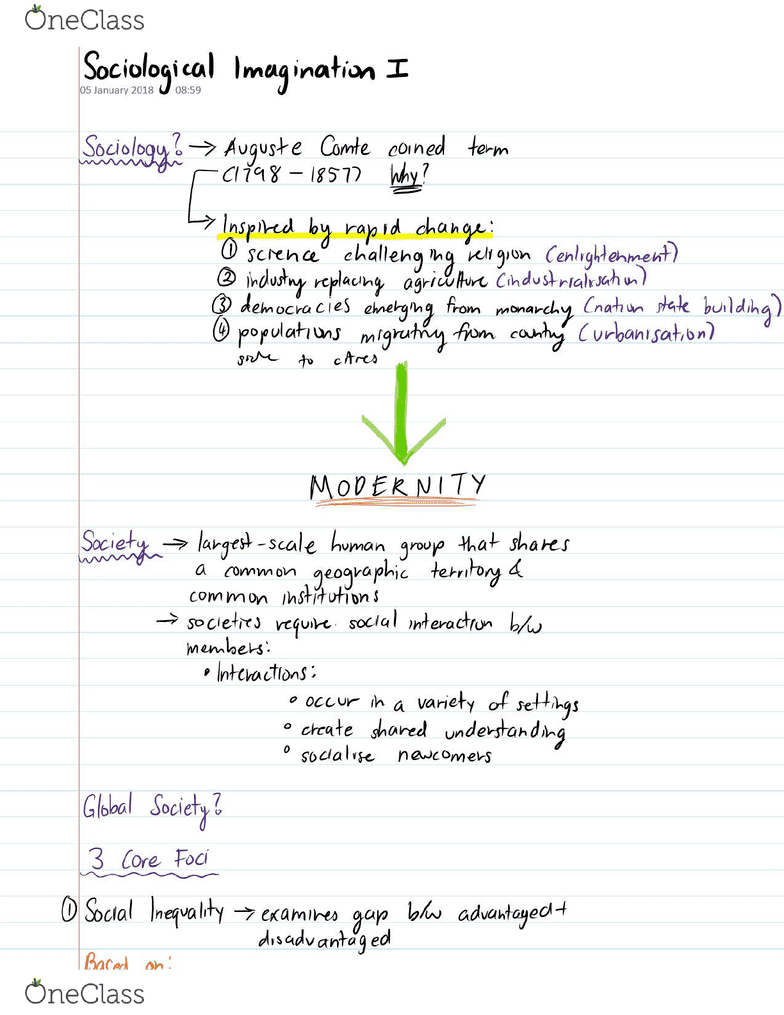 OneClass
Sociological Imagination I
05 January 2018 08:59
Sociology? → Auguste Comte coined term
(1798 - 1857) Why?
↳ Inspired by rapid change:
① science challenging religion (enlightenment)
② industry replacing agriculture (industrialisation)
③ democracies emerging from monarchy (nation state building)
④ populations migrating from country (urbanisation)
side to cities
MODERNITY
Society → largest-scale human group that shares
a common geographic territory &
common institutions
→ societies require social interaction b/w
members:
• Interactions:
◦ occur in a variety of settings
◦ create shared understanding
◦ socialise newcomers
Global Society?
3 Core Foci
① Social Inequality → examines gap b/w advantaged +
disadvantaged
Based on:
OneClass